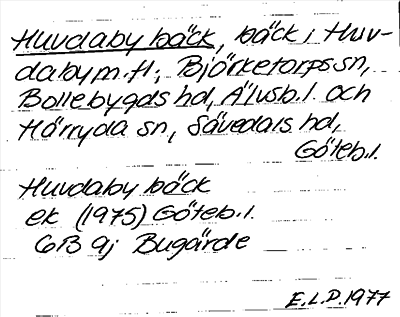 Huvdaby bäck, bäck i Huv-
daby m.fl., Björketorps sn,
Bollebygds hd, Älvsb.l. och
Härryda sn, Sävedals hd,
Göteb.l.
Huvdaby bäck
ek (1975) Göteb.l.
6B 9j Bugärde
E.L.D. 1977